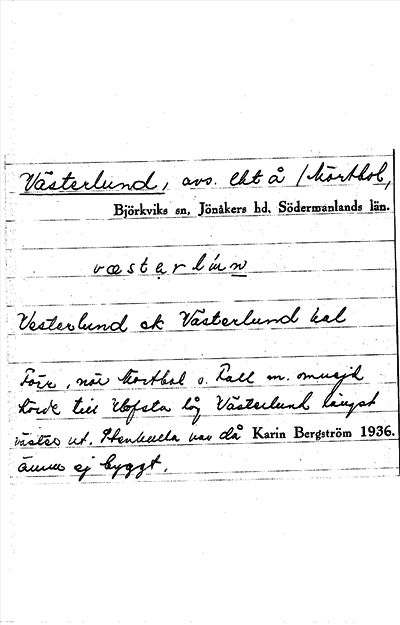 Västerlund, avs. Eht å Mörtbol,
Björkviks sn, Jönåkers hd, Södermanlands län.
væstẹrlúnn
Vesterlund ek Västerlund kal
Förr, när Mortbol o. Tall m.
hörde till Hofsta låg Västerlund längst
väster ut. Stenhuvla var då Karin Bergström 1936.
ännu ej byggt.